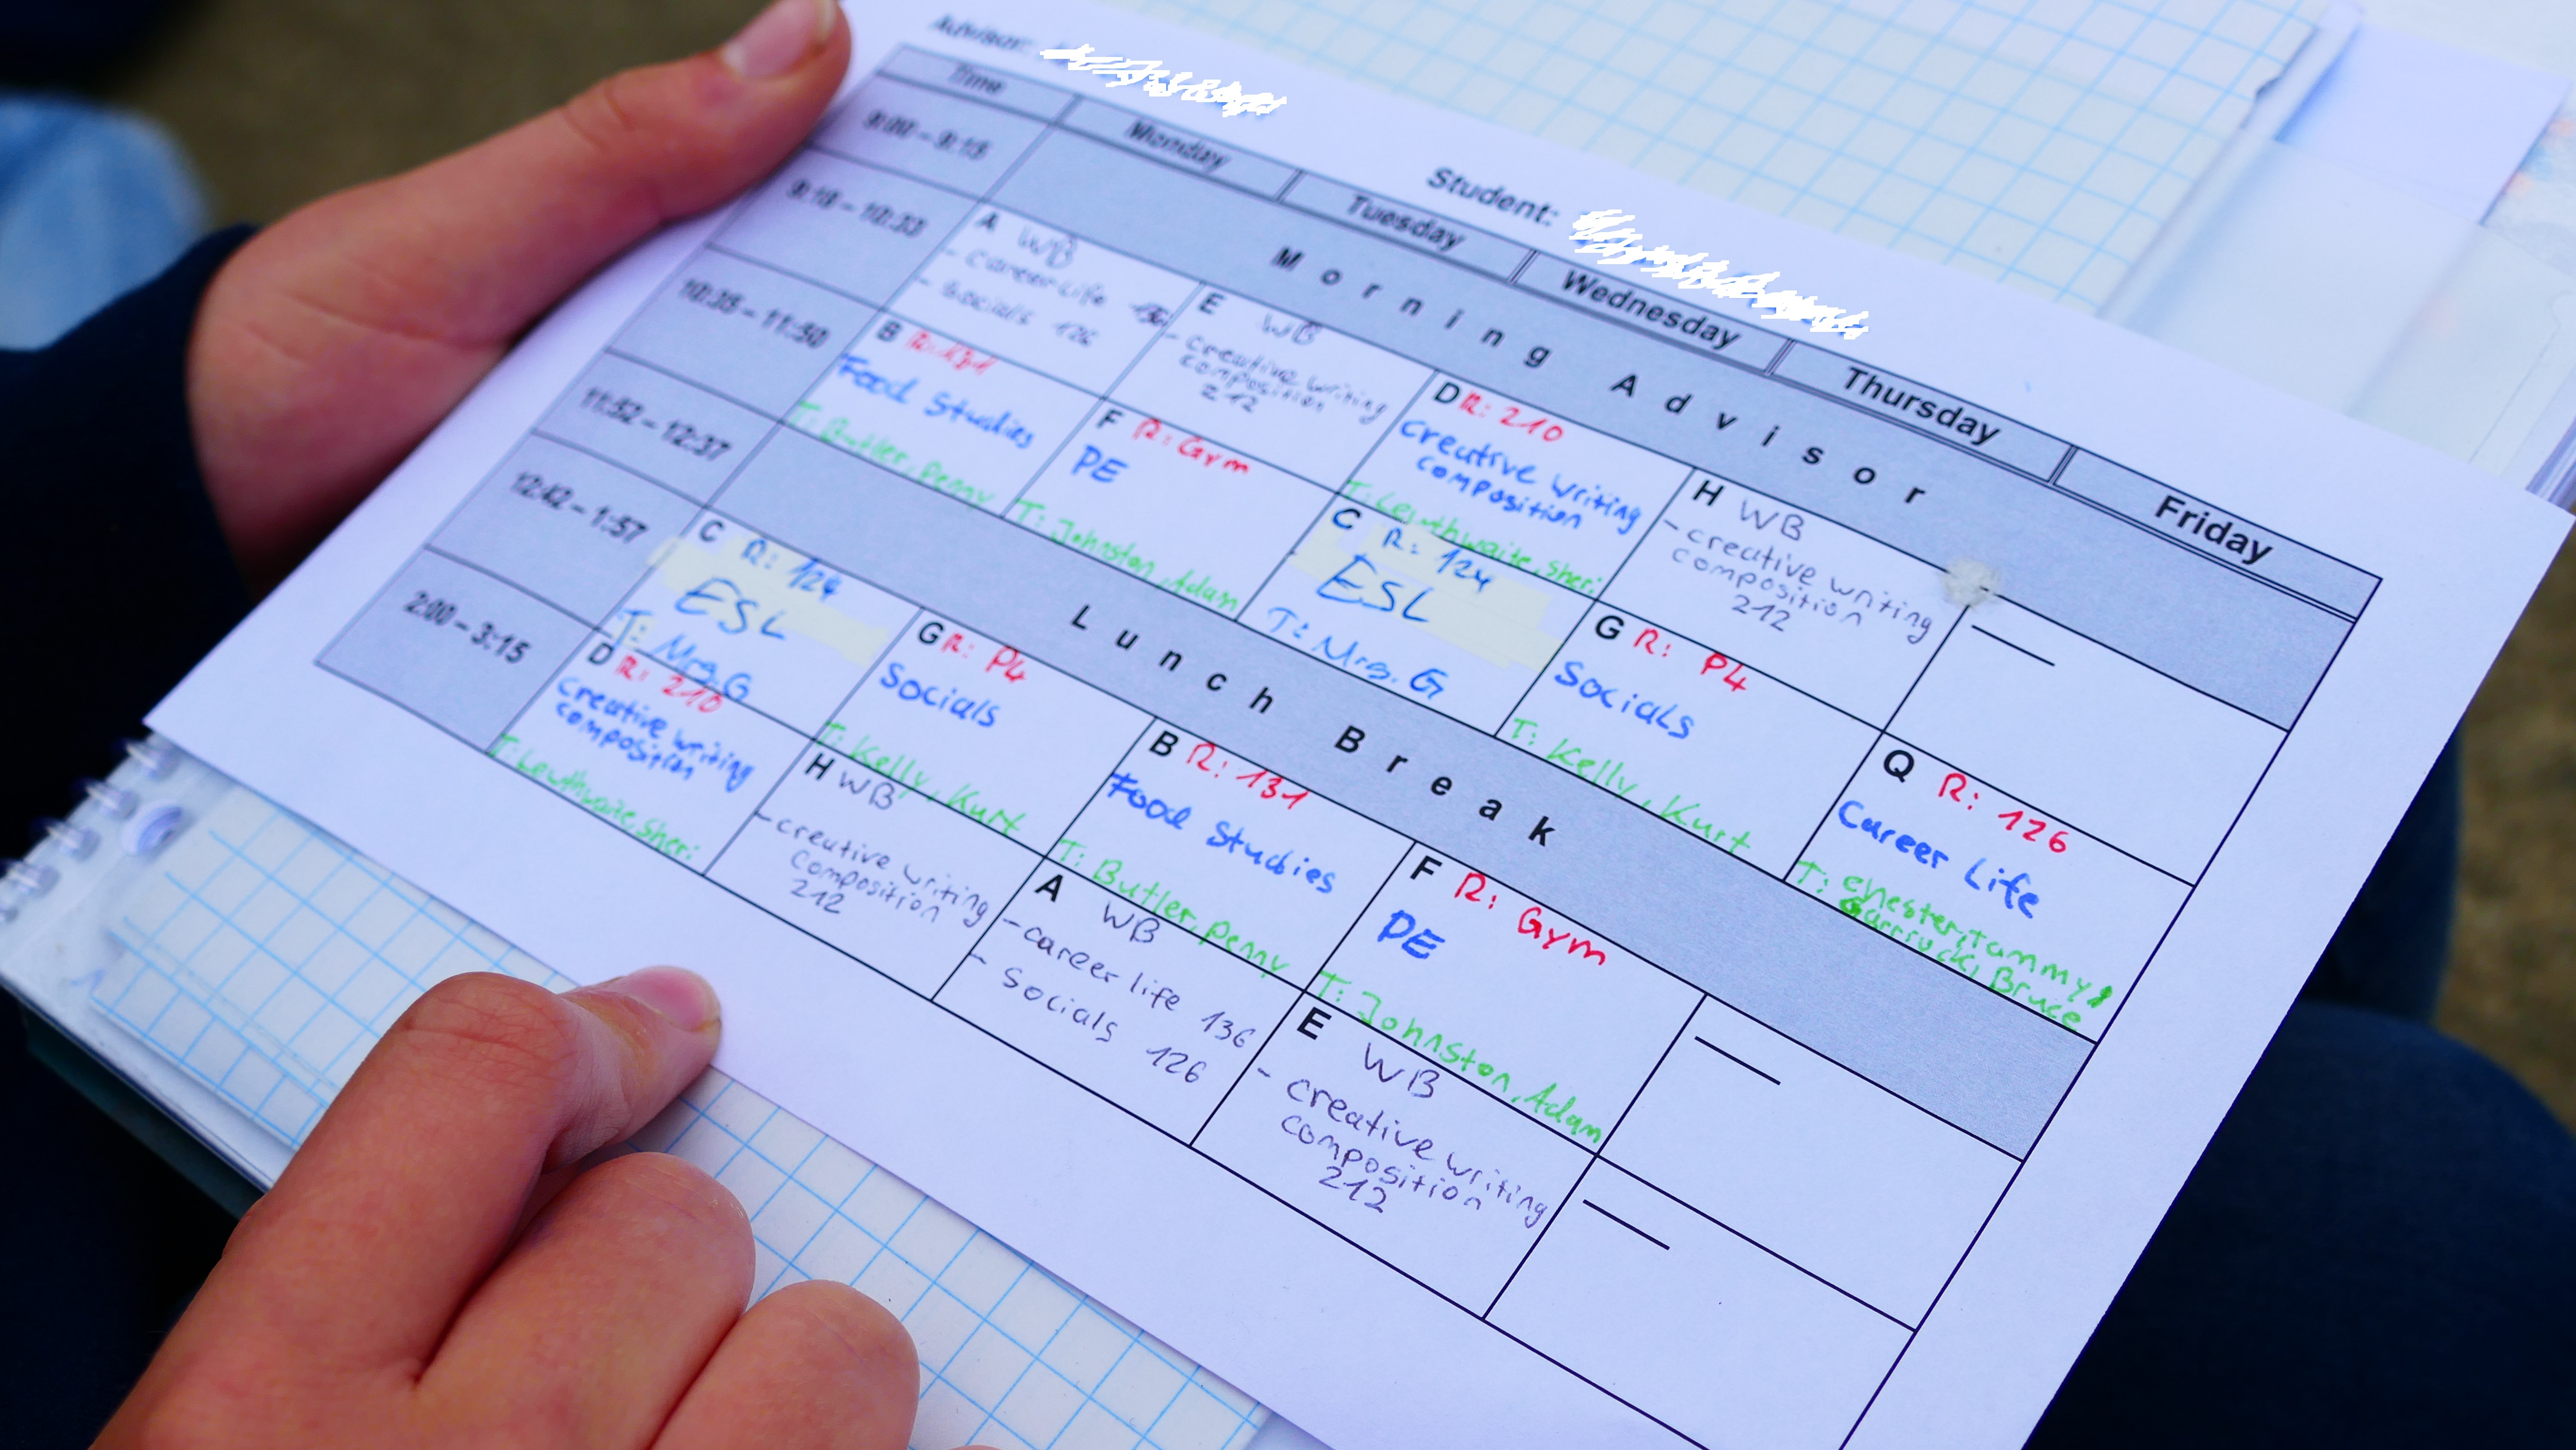 Advisor:
Student:
Time
Monday
Tuesday
Wednesday
Thursday
Friday
9:00 – 9:15
Morning Advisor
9:18 – 10:33
A WB
- career life 136
- Socials 126
E WB
- creative writing
composition
212
D R: 210
creative writing
composition
T: Leuthwaite, Sheri
H WB
- creative writing
composition
212
—
10:35 – 11:50
B R: 131
Food Studies
T: Butler, Penny
F R: Gym
PE
T: Johnston, Adam
C R: 124
ESL
T: Mrs. G
G R: P4
Socials
T: Kelly, Kurt
Q R: 126
Career Life
T: Chester, Tammy,
Garruck, Bruce
11:52 – 12:37
Lunch Break
12:42 – 1:57
C R: 124
ESL
T: Mrs. G
G R: P4
Socials
T: Kelly, Kurt
B R: 131
Food Studies
T: Butler, Penny
F R: Gym
PE
T: Johnston, Adam
—
2:00 – 3:15
D R: 210
creative writing
composition
T: Leuthwaite, Sheri
H WB
- creative writing
composition
212
A WB
- career life 136
- Socials 126
E WB
- creative writing
composition
212
—